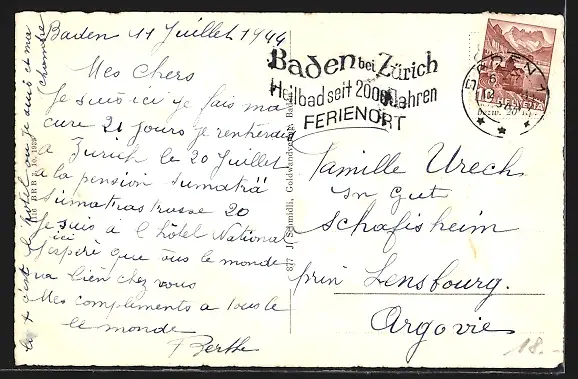 Baden 11 Juillet 1944
Mes Chers
Je suis ici je fais ma
cure 21 jours je rentrerai
a Zurich le 20 Juillet
a la pension Sumatra
Sumatrastrasse 20
Je suis à l hôtel National
ici
J'espère que tous le monde
va bien chez vous
Mes compliments a tous le
le monde
Berthe
l'hotel ou je suis et ma
chambre
877 J. Schmidli, Goldwandverlag, Baden
Baden bei Zürich
Heilbad seit 2000 Jahren
FERIENORT
BADEN 1
HELVETIA
20
Familie Urech
in Gut
Schafisheim
prin Lensbourg.
Argovie
18.-